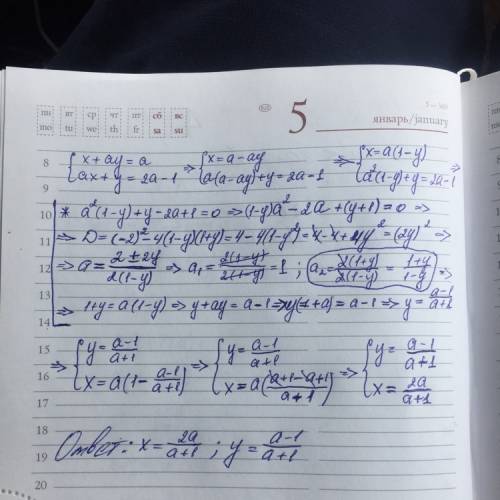 5 – 360
пн вт ср чт пт сб вс
mo tu we th fr sa su
5
январь/january
8 {x+ay=a {x=a-ay {x=a(1-y)
9 {ax+y=2a-1 ⇒ {a(a-ay)+y=2a-1 ⇒ {a²(1-y)+y=2a-1 ⇒
10 * a²(1-y)+y-2a+1=0 ⇒ (1-y)a²-2a+(y+1)=0 ⇒
11 ⇒ D=(-2)²-4(1-y)(1+y)=4-4(1-y²)=4-4+4y²=(2y)² ⇒
12 ⇒ a=(2±2y)/(2(1-y)) ⇒ a₁=(2(1-y))/(2(1-y))=1; a₂=(2(1+y))/(2(1-y))=(1+y)/(1-y) ⇒
13 ⇒ 1+y=a(1-y) ⇒ y+ay=a-1 ⇒ y(1+a)=a-1 ⇒ y=(a-1)/(a+1)
14
15 ⇒ {y=(a-1)/(a+1) ⇒ {y=(a-1)/(a+1) ⇒ {y=(a-1)/(a+1)
16 {x=a(1-(a-1)/(a+1)) {x=a((a+1-a+1)/(a+1)) {x=2a/(a+1)
17
18
19 Ответ: x=2a/(a+1); y=(a-1)/(a+1)
20